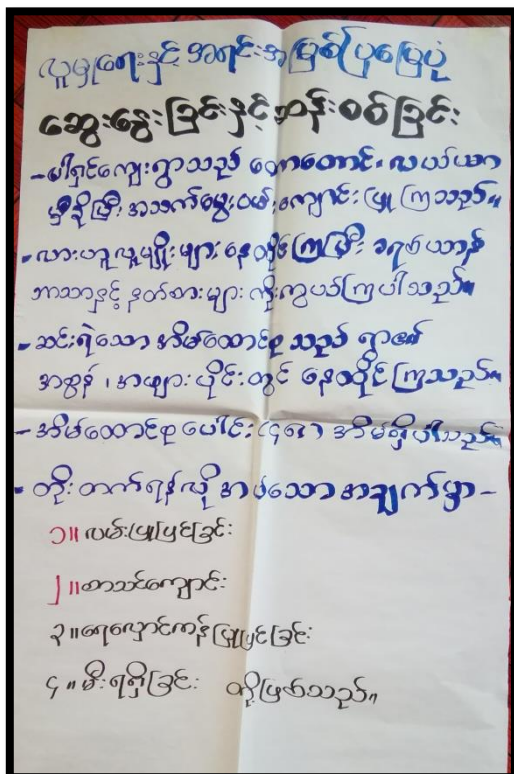 လူမှုရေးနှင့် အရင်းအမြစ်ပြမြေပုံ
ဆွေးနွေးခြင်းနှင့်ဆန်းစစ်ခြင်း
- ပါရှင်ကျေးရွာသည် တောတောင်၊ လယ်ယာ
မှီခိုပြီး အသက်မွေးဝမ်းကျောင်းပြု ကြသည်။
- လားဟူလူမျိုးများ နေထိုင်ကြပြီး ခရစ်ယာန်
ဘာသာနှင့် နတ်စားများ ကိုးကွယ်ကြပါသည်။
- ဆင်းရဲသော အိမ်ထောင်စု သည် ရွာ၏
အစွန် ၊ အဖျား ပိုင်းတွင် နေထိုင်ကြသည်။
- အိမ်ထောင်စု ပေါင်း အိမ်ရှိပါသည်။
- တိုးတက်ရန်လို အပ်သော အချက်မှာ -
၁။ လမ်းပြုပြင်ခြင်း
၂။ စာသင်ကျောင်း
၃။ ရေလှောင်ကန်ပြုပြင်ခြင်း
၄။ မီးရရှိခြင်း တို့ဖြစ်သည်။